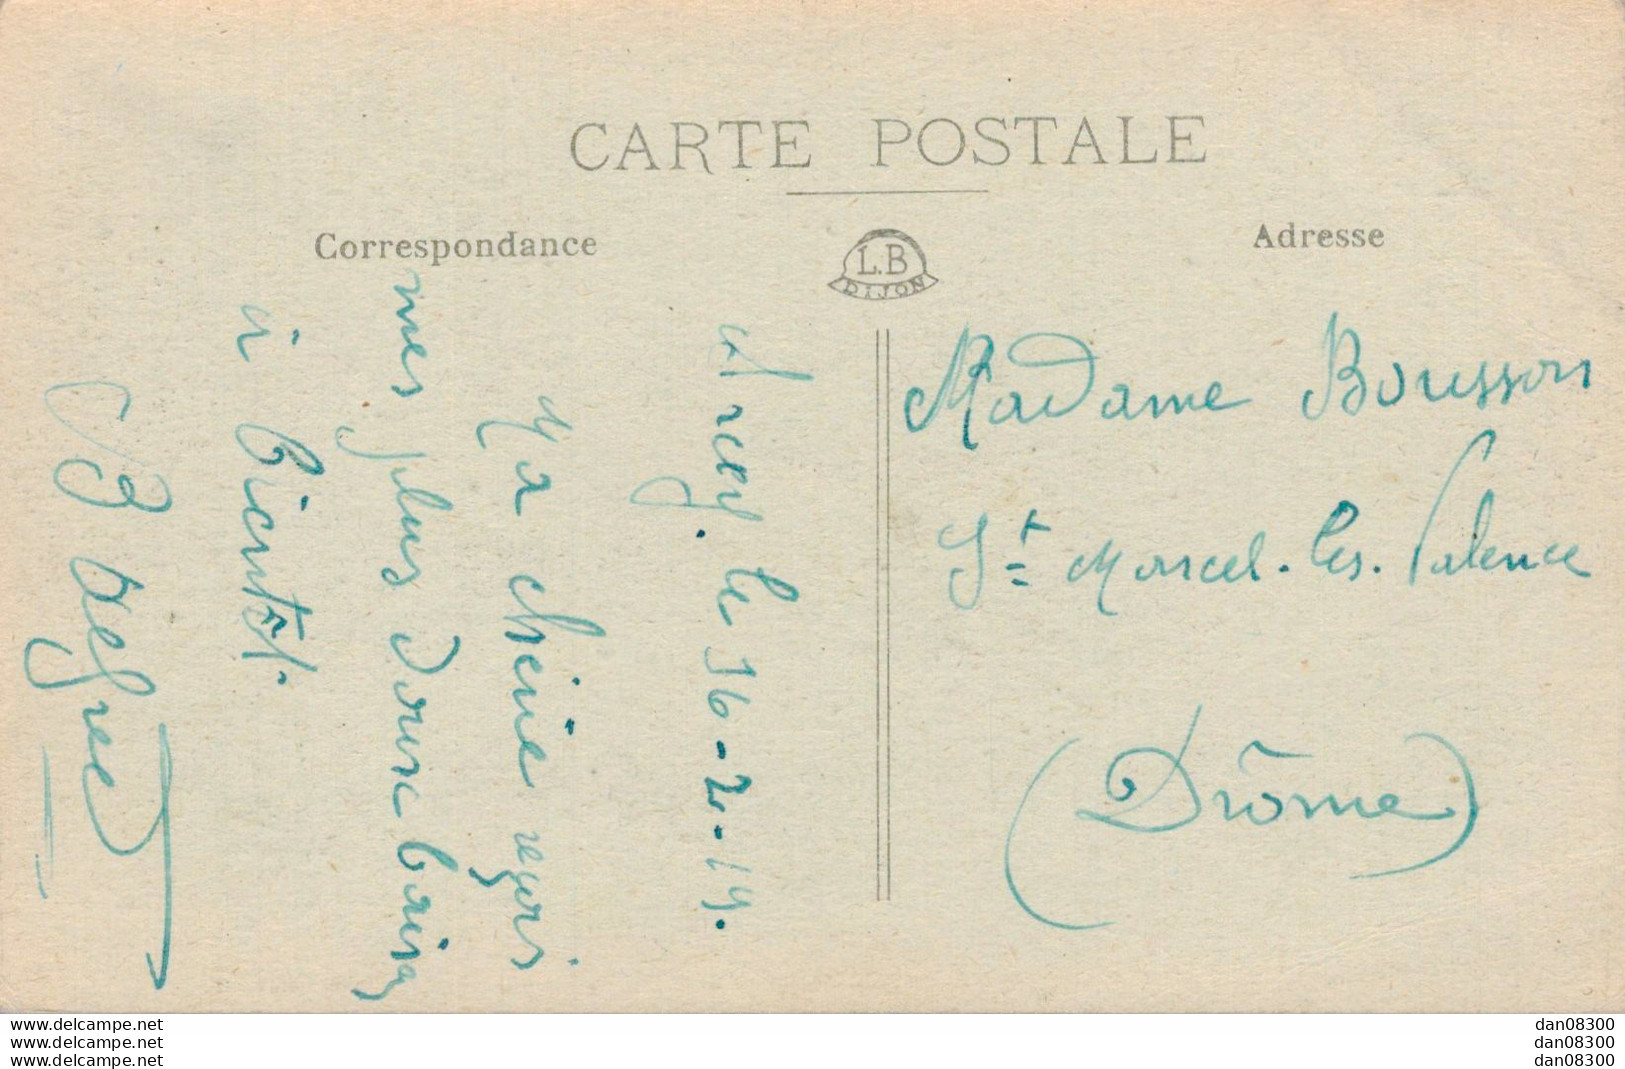 CARTE POSTALE
Correspondance
L.B
DIJON
Adresse
Arcey. le 16-2-19.
Ma chérie reçois
mes plus doux baisers
à bientôt.
Madame Bousson
St Marcel. les. Valence
(Drôme)
www.delcampe.net
www.delcampe.net
www.delcampe.net
dan08300
dan08300
dan08300